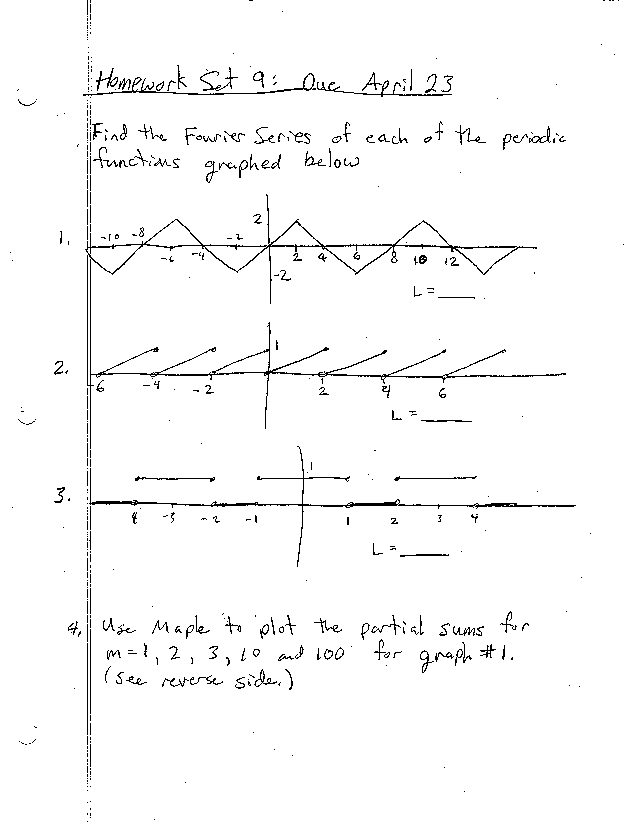 Homework Set 9: Due April 23
Find the Fourier Series of each of the periodic
functions graphed below
1.
2
-10 -8 -6 -4 -2 2 4 6 8 10 12
-2
L = ____
2.
1
-6 -4 -2 2 4 6
L = ____
3.
1
-3 -2 -1 1 2 3 4
L = ____
4. Use Maple to plot the partial sums for
m=1, 2, 3, 10 and 100 for graph #1.
(See reverse side.)